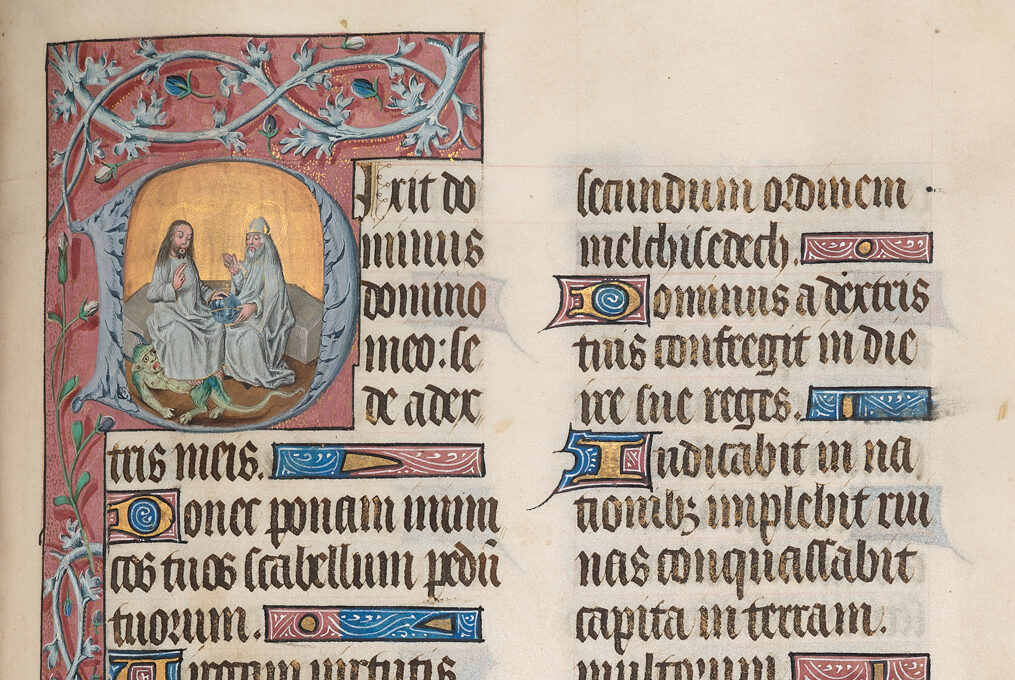 Dixit do
minus
domino
meo: se
de a dex
tris meis.
Donec ponam inimi
cos tuos scabellum pedū
tuorum.
Virgam virtutis
secundum ordinem
melchisedech.
Dominus a dextris
tuis confregit in die
ire sue reges.
Iudicabit in na
tionibꝫ implebit rui
nas conquassabit
capita in terram.
multorum